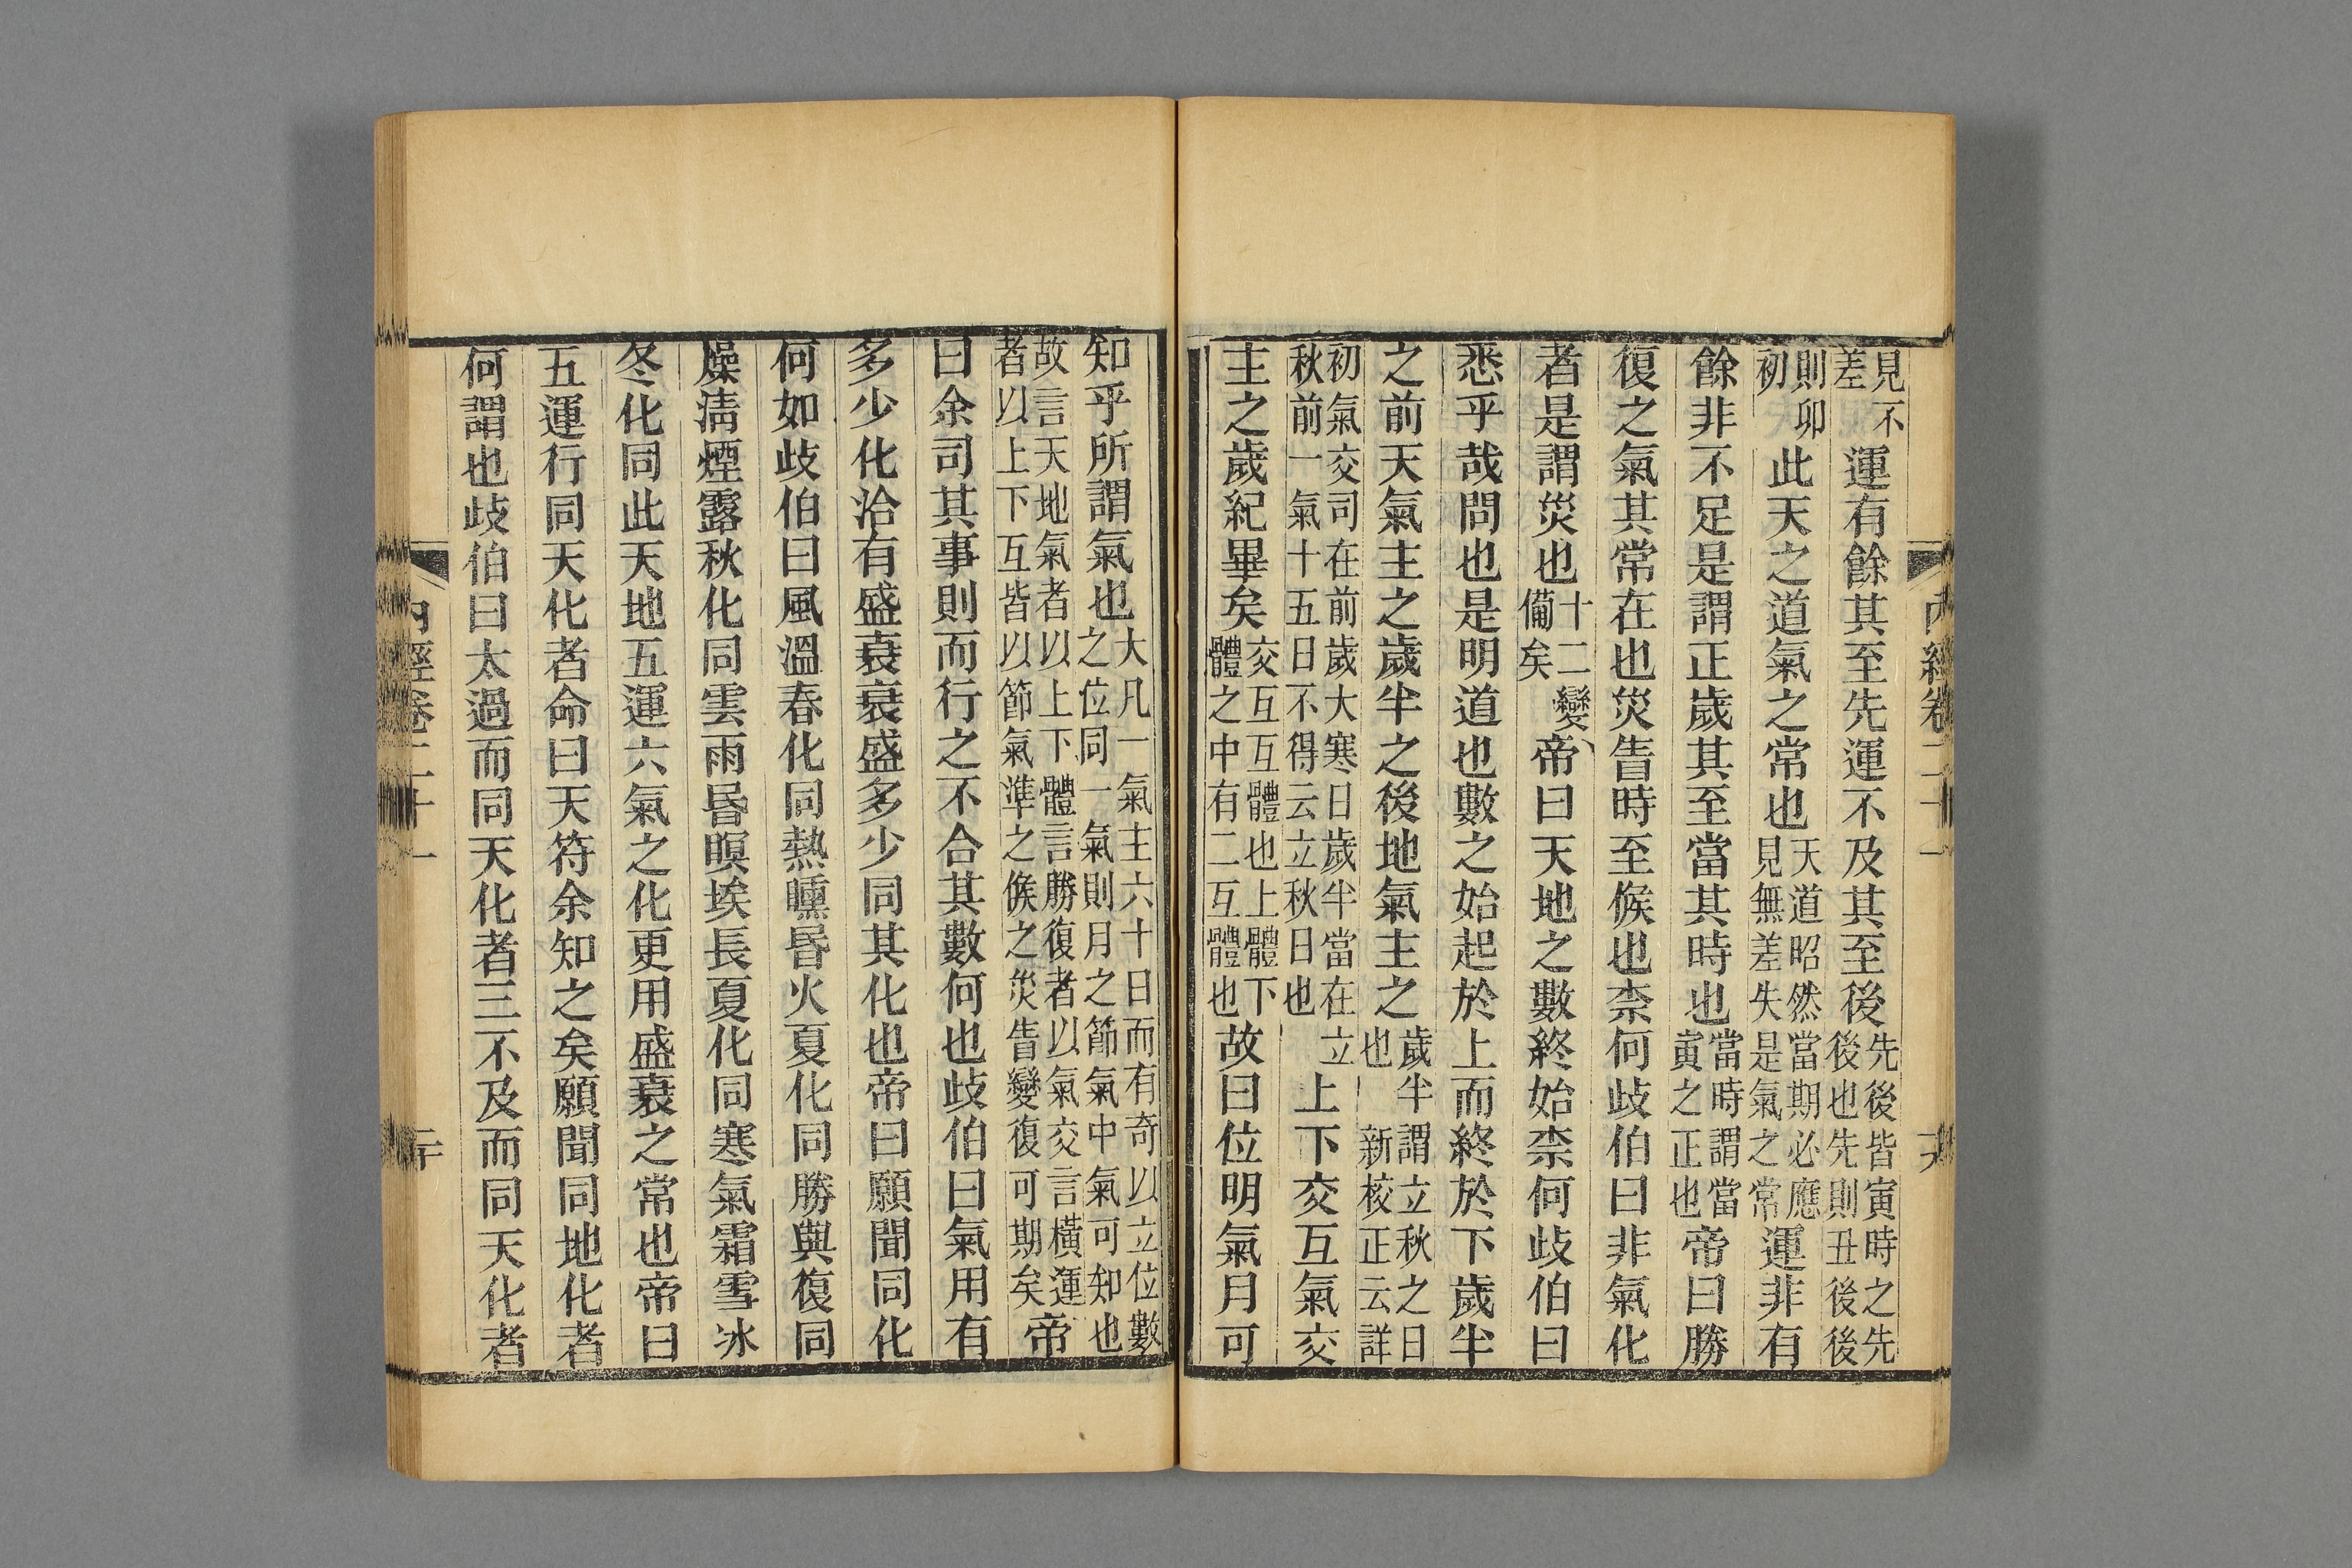 內經卷二十一
見不
差
運有餘其至先運不及其至後
先後皆寅時之先
後也先則丑後後
則卯
初
此天之道氣之常也
天道昭然當期必應
見無差失是氣之常
運非有
餘非不足是謂正歲其至當其時也
當時謂當
寅之正也
帝曰勝
復之氣其常在也災眚時至候也柰何歧伯曰非氣化
者是謂災也
十二變
備矣
帝曰天地之數終始柰何歧伯曰
悉乎哉問也是明道也數之始起於上而終於下歲半
之前天氣主之歲半之後地氣主之
歲半謂立秋之日
也 新校正云詳
初氣交司在前歲大寒日歲半當在立
秋前一氣十五日不得云立秋日也
上下交互氣交
主之歲紀畢矣
交互互體也上體下
體之中有二互體也
故曰位明氣月可
知乎所謂氣也
大凡一氣主六十日而有奇以立位數
之位同一氣則月之節氣中氣可知也
故言天地氣者以上下體言勝復者以氣交言橫運
者以上下互皆以節氣準之候之災眚變復可期矣
帝
曰余司其事則而行之不合其數何也歧伯曰氣用有
多少化洽有盛衰衰盛多少同其化也帝曰願聞同化
何如歧伯曰風溫春化同熱曛昬火夏化同勝與復同
燥淸煙露秋化同雲雨昬暝埃長夏化同寒氣霜雪冰
冬化同此天地五運六氣之化更用盛衰之常也帝曰
五運行同天化者命曰天符余知之矣願聞同地化者
何謂也歧伯曰太過而同天化者三不及而同天化者
內經卷二十一
二十